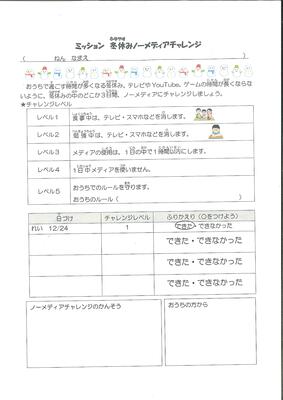 ミッション 冬休みノーメディアチャレンジ
( ねん なまえ )
おうちで過ごす時間が多くなる冬休み。テレビやYouTube、ゲームの時間が長くならな
いように、冬休みの中のどこか3日間、ノーメディアにチャレンジしましょう。
★チャレンジレベル
レベル1 食事中は、テレビ・スマホなどを消します。
レベル2 勉強中は、テレビ・スマホなどを消します。
レベル3 メディアの使用は、1日の中で1時間以内にします。
レベル4 1日中メディアを使いません。
レベル5 おうちでのルールを守ります。
おうちのルール( )
日づけ チャレンジレベル ふりかえり(○をつけよう)
れい 12/24 1 できた・できなかった
できた・できなかった
できた・できなかった
できた・できなかった
ノーメディアチャレンジのかんそう おうちの方から